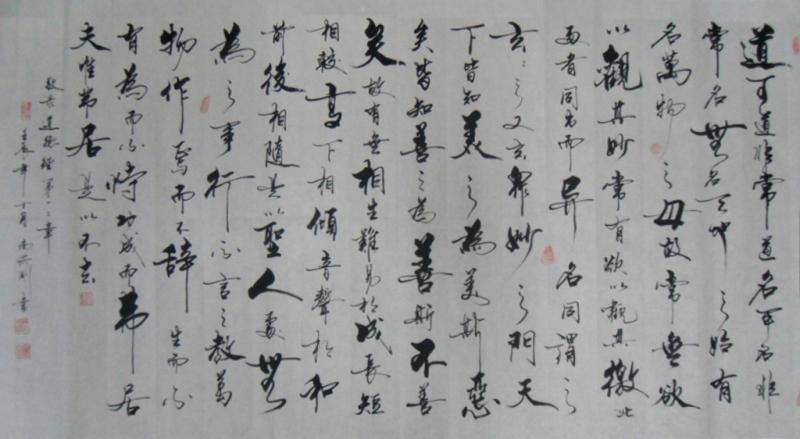 道可道非常道名可名非
常名無名天地之始有
名萬物之母故常無欲
以觀其妙常有欲以觀其徼此
兩者同出而異名同謂之
玄玄之又玄眾妙之門天
下皆知美之為美斯惡
矣皆知善之為善斯不善
矣故有無相生難易相成長短
相較高下相傾音聲相和
前後相隨是以聖人處無
為之事行不言之教萬
物作焉而不辭生而不
有為而不恃功成而弗居
夫唯弗居是以不去
道德經第一二章
壬辰年十月